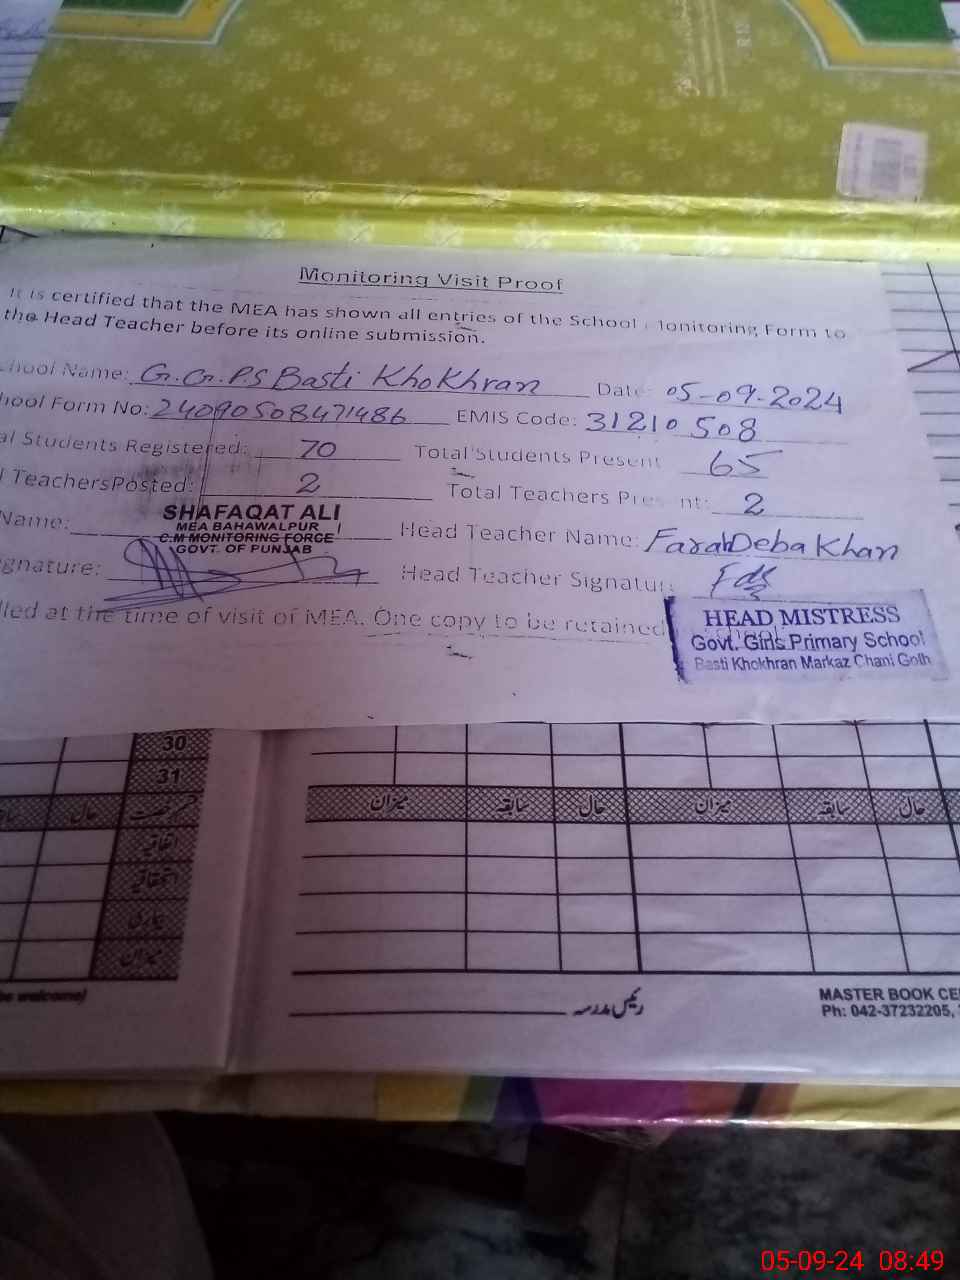 Monitoring Visit Proof
It is certified that the MEA has shown all entries of the School Monitoring Form to
the Head Teacher before its online submission.
chool Name: G.G.P.S Basti Khokhran Date: 05-09-2024
hool Form No: 24090508471486 EMIS Code: 31210508
al Students Registered: 70 Total Students Present 65
l TeachersPosted: 2 Total Teachers Present: 2
SHAFAQAT ALI
MEA BAHAWALPUR
C.M MONITORING FORCE
GOVT. OF PUNJAB
Name: Head Teacher Name: Farah Deba Khan
gnature: Head Teacher Signatur
lled at the time of visit of MEA. One copy to be retained
HEAD MISTRESS
Govt. Girls Primary School
Basti Khokhran Markaz Chani Goth
30
31
حال میزان سابقہ حال میزان سابقہ حال
اتفاقیہ
استحقاقیہ
بیماری
میزان
be welcome)
رئیس مدرسہ
MASTER BOOK CE
Ph: 042-37232205,
05-09-24 08:49